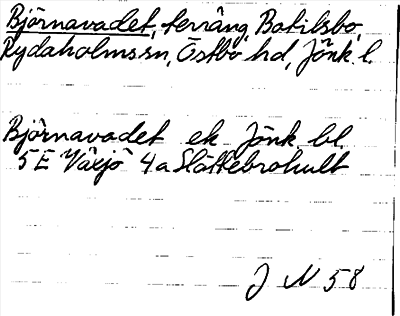 Björnavadet, terräng, Botilsbo,
Rydaholms sn, Östbo hd, Jönk. l.
Björnavadet ek Jönk. bl.
5 E Växjö 4 a Slättebrohult
J N 58